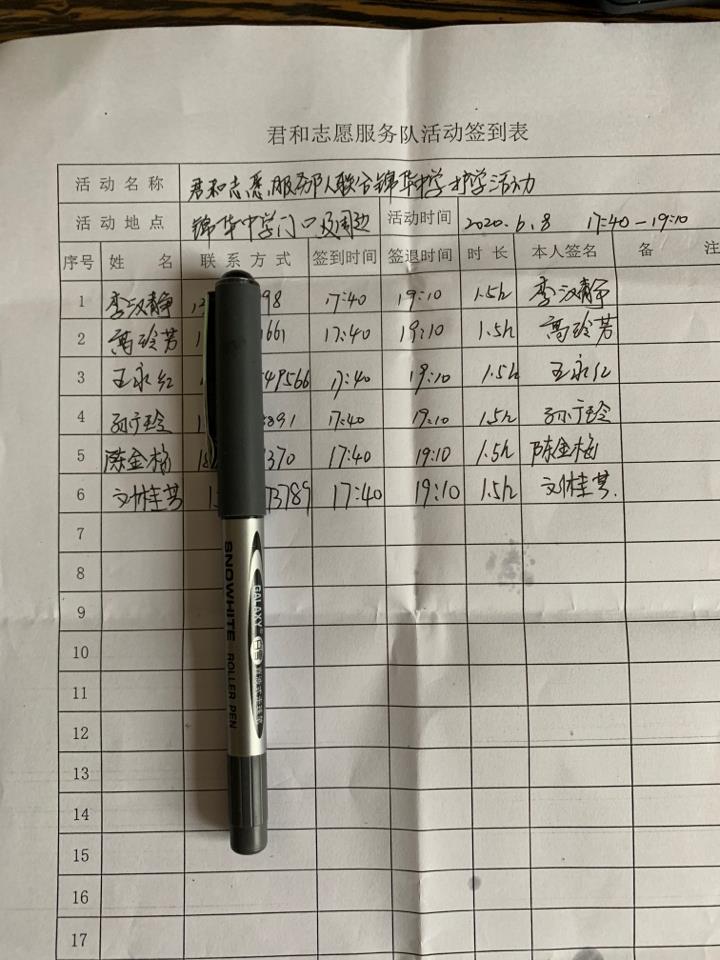 君和志愿服务队活动签到表
活动名称 君和志愿服务队联合锦华中学护学活动
活动地点 锦华中学门口及周边 活动时间 2020.6.8 17:40-19:10
序号 姓名 联系方式 签到时间 签退时间 时长 本人签名 备注
1 李汉静 98 17:40 19:10 1.5h 李汉静
2 高玲芳 1661 17:40 19:10 1.5h 高玲芳
3 王永红 49566 17:40 19:10 1.5h 王永红
4 孙广玲 3891 17:40 19:10 1.5h 孙广玲
5 陈金梅 1370 17:40 19:10 1.5h 陈金梅
6 刘桂芹 73789 17:40 19:10 1.5h 刘桂芹.
7
8
9
10
11
12
13
14
15
16
17
GALAXY
SNOWHITE ROLLER PEN